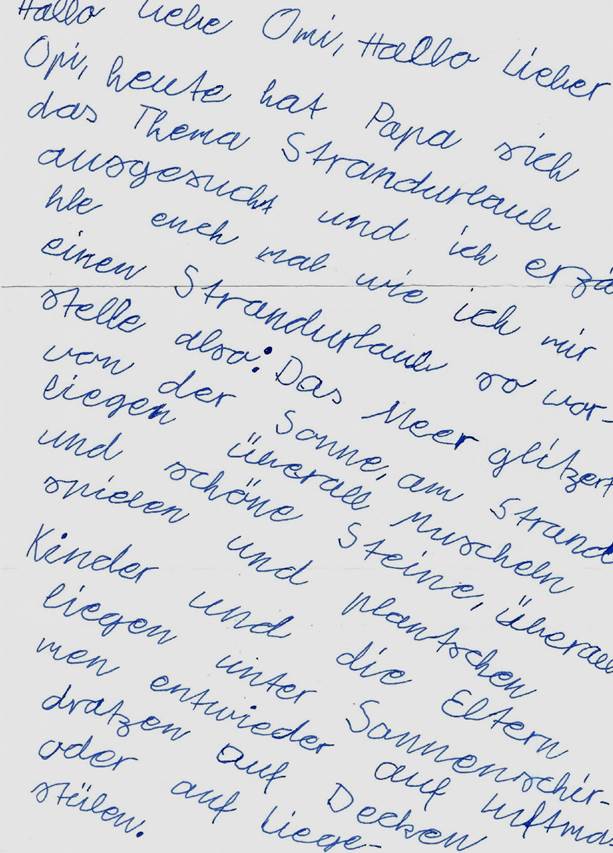 Hallo liebe Omi, Hallo Lieber
Opi, heute hat Papa sich
das Thema Strandurlaub
ausgesucht und ich erzä
hle euch mal wie ich mir
einen Strandurlaub so vor-
stelle also: Das Meer glitzert
von der Sonne, am Strand
liegen überall Muscheln
und schöne Steine, überall
spielen und plantschen
Kinder und die Eltern
liegen unter Sonnenschir-
men entwieder auf Luftma
dratzen auf Decken
oder auf Liege-
stülen.